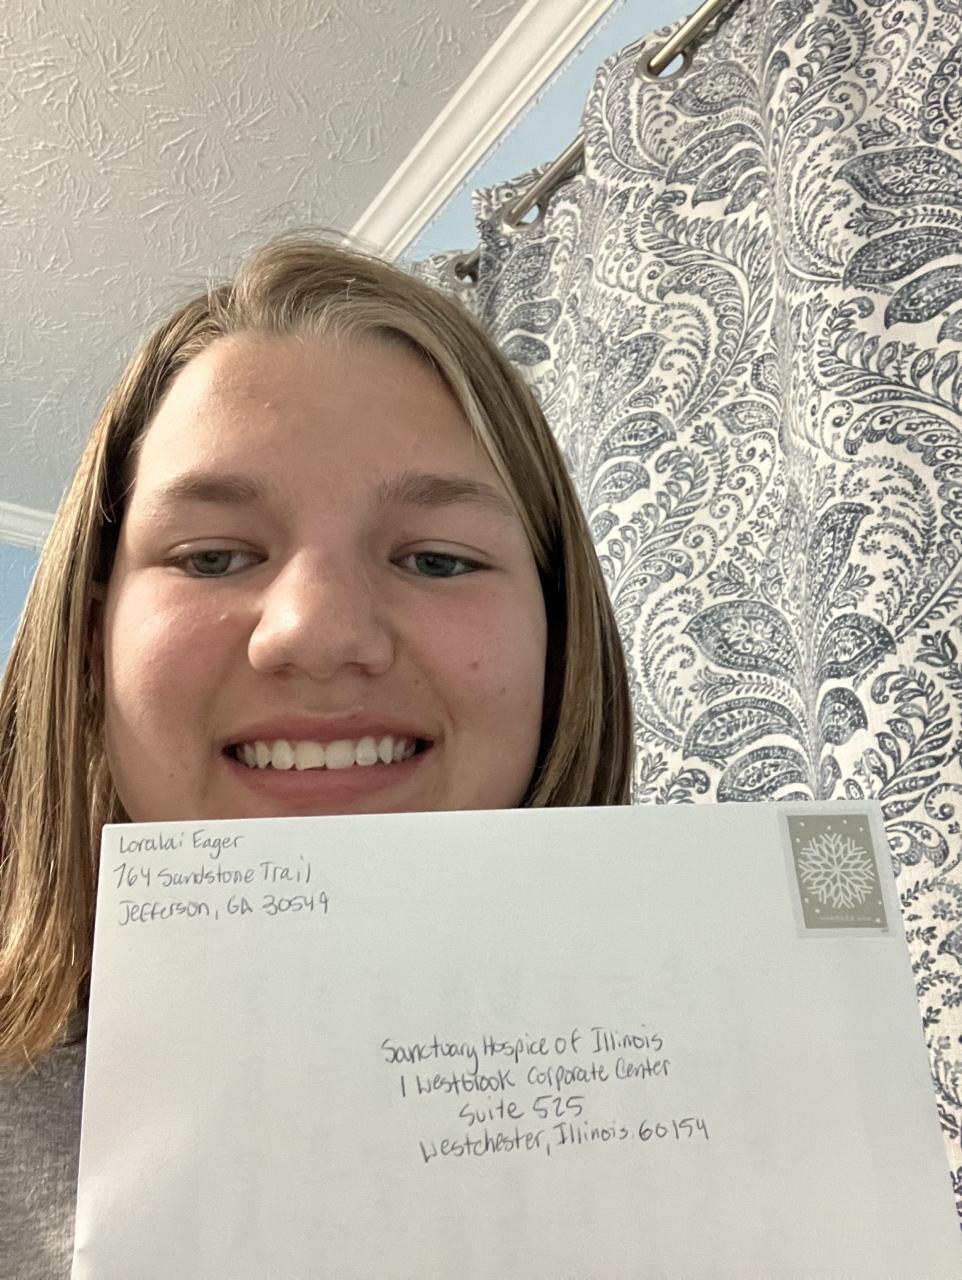 Loralai Eager
764 Sandstone Trail
Jefferson, GA 30549
Sanctuary Hospice of Illinois
1 Westbrook Corporate Center
Suite 525
Westchester, Illinois 60154